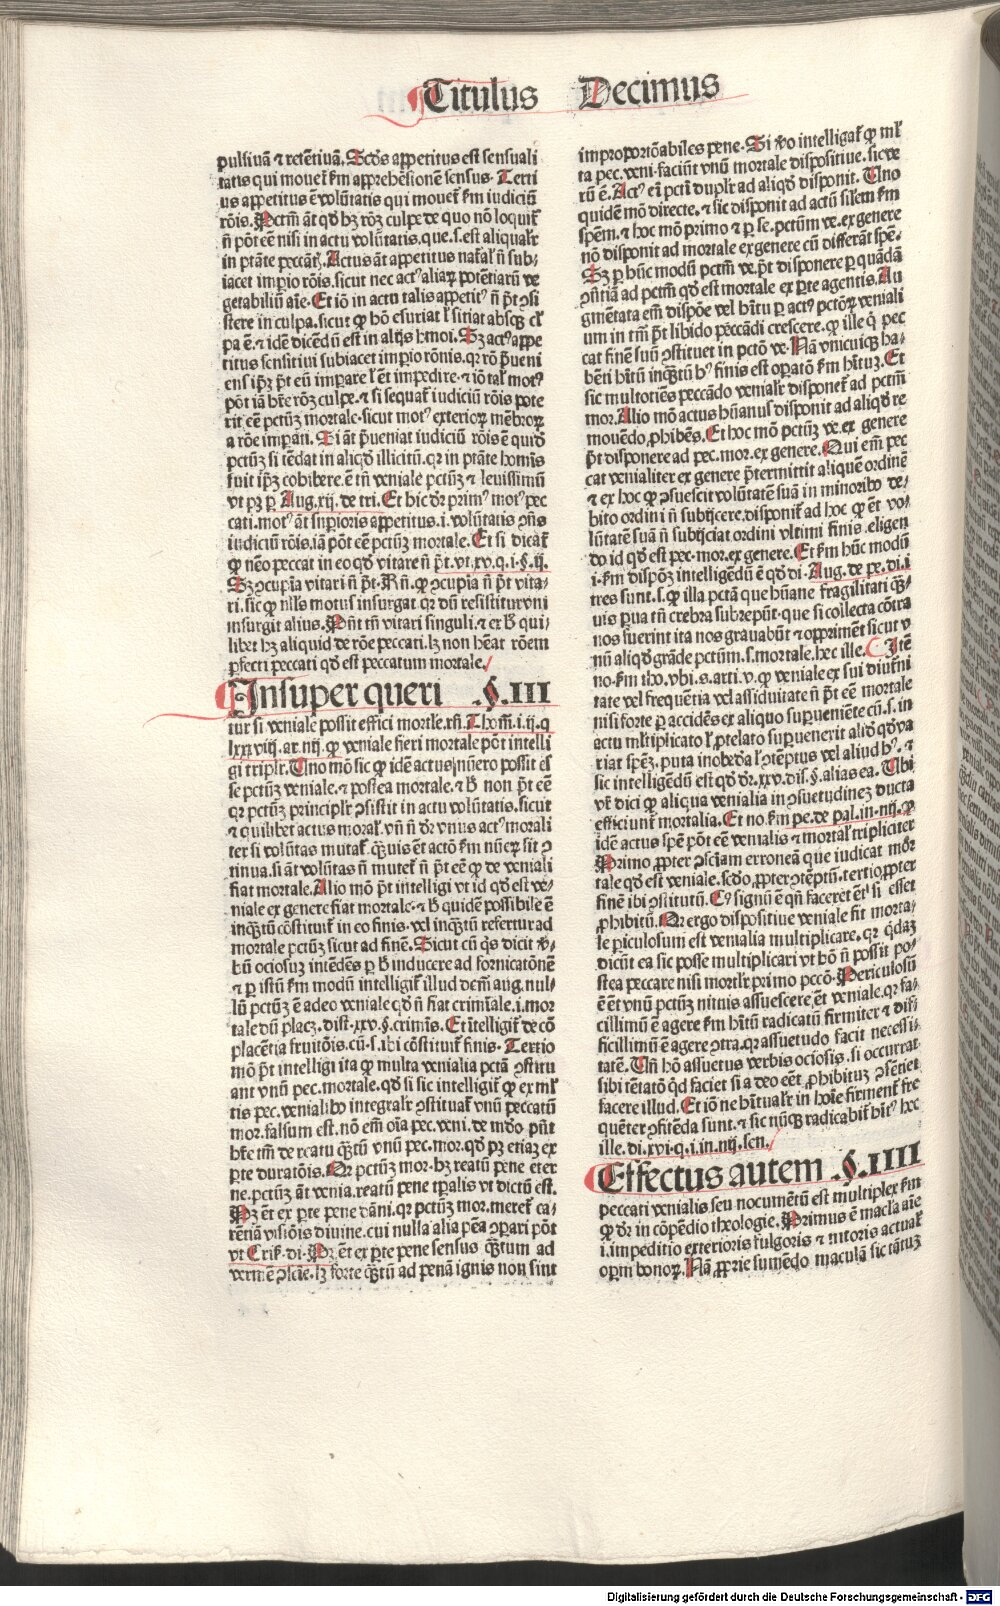 Titulus Decimus
pulsiuā ⁊ retētiuā. Scds̄ appetitus est sensuali
tatis qui mouet᷑ ẜm apprehēsionē sensus. Terti
us appetitus ē volūtatis qui mouet᷑ ẜm iudiciū
rōis. Pctm̄ āt qd̓ hꝫ rōꝫ culpe de quo nō loquit᷑
n̄ pōt eē nisi in actu volūtatis. que .s. est aliqual̓r
in ptāte peccāt̓. Actus āt appetitus nat̓al̓ n̄ sub-
iacet imperio rōis. sicut nec actꝰ aliaꝝ potētiarū ve
getabiliū aīe. Et iō in actu talis appetitꝰ n̄ pt̄ ꝯsi
stere in culpa. sicut ꝙ hō esuriat l̓ sitiat absqꝫ cl̓
pa ē. ⁊ idē dicēdū est in alijs hmōi. Sꝫ actꝰ appe
titus sensitiui subiacet imperio rōnis. qꝛ rō p̄ueni
ens ip̄ꝫ pt̄ eū imperare l̓ ēt impedire. ⁊ iō tal̓ motꝰ
pōt iā hr̄e rōꝫ culpe. ⁊ si sequat᷑ iudiciū rōis pote
rit eē pctū mortale. sicut motꝰ exterioꝝ mēbroꝝ
a rōe imperati. Si āt p̄ueniat iudiciū rōis ē quidē
pctūꝫ si tēdat in aliqd̓ illicitū. qꝛ in ptāte homīs
fuit ip̄ꝫ cohibere. ē tn̄ veniale pctūꝫ ⁊ leuissimū
vt pꝫ ꝑ Aug. xij. de tri. Et hic dr̄ primꝰ motꝰ pec
cati. motꝰ āt superioris appetitus .i. volūtatis ꝯn̄s
iudiciū rōis. iā pōt eē pctūꝫ mortale. Et si dicat᷑
ꝙ nēo peccat in eo qd̓ vitare n̄ pt̄. vt. xv. q. i. §. ij.
Sꝫ ꝯcupīa vitari n̄ pt̄. R̄ n̄. ꝙ ꝯcupīa n̄ pt̄ vita-
ri. sic ꝙ nll̓s motus insurgat. qꝛ dū resistitur vni
insurgit alius. Pn̄t tn̄ vitari singuli. ⁊ ex B qui-
libet hꝫ aliquid de rōe peccati. lꝫ non hēat rōem
perfecti peccati qd̓ est peccatum mortale.
Insuper queri .§. III
tur si veniale possit effici mortle. rn̄. Thom̄. i. ij. q
lxxxviij. ar. iiij. ꝙ veniale fieri mortale pōt intelli
gi tripl̓r. Uno mō sic ꝙ idē actus nūero possit es
se pctūꝫ veniale. ⁊ postea mortale. ⁊ B non pt̄ eē
qꝛ pctūꝫ principl̓r ꝯsistit in actu volūtatis. sicut
⁊ quilibet actus moral̓. vn̄ n̄ dr̄ vnus actꝰ morali
ter si volūtas mutat᷑. qꝫuis ēt actō ẜm nūeꝝ sit ꝯ
tinua. si āt volūtas n̄ mutet᷑ n̄ pt̄ eē ꝙ de veniali
fiat mortale. Alio mō pt̄ intelligi vt id qd̓ est ve-
niale ex genere fiat mortale. ⁊ B quidē possibile ē
inqꝫtū cōstituit᷑ in eo finis. vel inqꝫtū refertur ad
mortale pctūꝫ sicut ad finē. Sicut cū qͥs dicit v̓-
bū ociosuꝫ intēdēs per B inducere ad fornicatōnē
⁊ ꝑ istū ẜm modū intelligit᷑ illud dem̄ aug. nul-
lū pctūꝫ ē adeo veniale qd̓ n̄ fiat crimīale .i. mor
tale dū placꝫ. dist. xxv. §. crimīs. Et intelligit᷑ de cō
placētia fruitōis. cū .s. ibi cōstituit᷑ finis. Tertio
mō pt̄ intelligi ita ꝙ multa venialia pctā ꝯstitu
ant vnū pec. mortale. qd̓ si sic intelligit᷑ ꝙ ex ml̓
tis pec. venialibꝰ integral̓r ꝯstituat᷑ vnū peccatū
mor. falsum est. nō em̄ oīa pec. veni. de mūdo pn̄t
hr̄e tm̄ de reatu qꝫtū vnū pec. mor. qd̓ pꝫ etiaꝫ ex
ꝑte duratōis. Qꝛ pctūꝫ mor. hꝫ reatū pene eter
ne. pctūꝫ āt venia. reatū pene tꝑalis vt dictū est.
Pꝫ ēt ex ꝑte pene dāni. qꝛ pctūꝫ mor. meret᷑ ca-
rētiā visiōis diuine. cui nulla alia pēa ꝯpari pōt
vt Criſ. di. Pꝫ ēt ex ꝑte pene sensus qꝫtum ad
vermē ꝯscīe. lꝫ forte qꝫtū ad penā ignis non sint
improportōabiles pene. Si v̓o intelligat᷑ ꝙ ml̓
ta pec. veni. faciūt vnū mortale dispositiue. sic ve
rū ē. Actꝰ em̄ pcti dupl̓r ad aliqd̓ disponit. Uno
quidē mō directe. ⁊ sic disponit ad actū silem ẜm
spēm. ⁊ hoc mō primo ⁊ ꝑ se. pctūm ve. ex genere
nō disponit ad mortale ex genere cū differāt spē.
Sꝫ ꝑ hūc modū pctm̄ ve. pt̄ disponere ꝑ quādā
ꝯn̄tiā ad pctm̄ qd̓ est mortale ex ꝑte agentis. Au
gmētata em̄ dispōe vel hītu ꝑ actꝰ pctōꝝ veniali
um in tm̄ pt̄ libido peccādi crescere. ꝙ ille qͥ pec
cat finē suū ꝯstituet in pctō ve. Nā vnicuiqꝫ ha-
bēti hītū inqꝫtū hꝰ finis est operatō ẜm hītuꝫ. Et
sic multotiēs peccādo venial̓r disponet᷑ ad pctm̄
mor. Alio mō actus hūanus disponit ad aliqd̓ re
mouēdo ꝓhibēs. Et hoc mō pctūꝫ ve. ex genere
pt̄ disponere ad pec. mor. ex genere. Qui em̄ pec
cat venialiter ex genere p̄termittit aliquē ordinē
⁊ ex hoc ꝙ ꝯsuescit volūtatē suā in minoribꝰ de-
bito ordini n̄ subijcere. disponit᷑ ad hoc ꝙ ēt vo-
lūtatē suā n̄ subijciat ordini vltimi finis. eligen
do id qd̓ est pec. mor. ex genere. Et ẜm hūc modū
.i. ẜm dispōꝫ intelligēdū ē qd̓ di. Aug. de pe. di. i
tres sunt .s. ꝙ illa pctā que hūane fragilitati qꝫ-
uis ꝑua tn̄ crebra subrepūt. que si collecta cōtra
nos fuerint ita nos grauabūt ⁊ opprimēt sicut v
nū aliqd̓ grāde pctūm .s. mortale. hec ille. Itē
no. ẜm tho. vbi .s. arti. v. ꝙ veniale ex sui diut̓ni
tate vel frequētia vel assiduitate n̄ pt̄ eē mortale
nisi forte ꝑ accidēs ex aliquo superueniēte cū .s. in
actu ml̓tiplicato l̓ ꝓtelato superuenerit aliqd̓ qd̓ va
riat spēꝫ. puta inobeda l̓ ꝯtēptus vel aliud hꝰ. ⁊
sic intelligēdū est qd̓ dr̄. xxv. dis. §. alias ea. Ubi
vr̄ dici ꝙ aliqua venialia in ꝯsuetudineꝫ ducta
efficiunt᷑ mortalia. Et no. ẜm pe. de pal. in. iiij. ꝙ
idē actus spē pōt eē venialis ⁊ mortal̓ tripliciter
Primo ꝓpter ꝯsciam erroneā que iudicat mōr
tale qd̓ est veniale. scd̓o ꝓpter ꝯtēptū. tertio ꝓpter
finē ibi ꝯstitutū. Cꝰ signū ē qn̄ faceret ēt si esset
ꝓhibitū. Qꝛ ergo dispositiue veniale fit morta-
le periculosum est venialia multiplicare. qꝛ qd̓aꝫ
dicūt ea sic posse multiplicari vt hō n̄ possit po-
stea peccare nisi mortl̓r primo pccō. Periculosū
ē ēt vnū pctūꝫ nimis assuescere. ēt veniale. qꝛ fa-
cillimū ē agere ẜm hītū radicatū firmiter ⁊ dif-
ficillimū ē agere ꝯtra. qꝛ assuetudo facit necessi-
tatē. Un̄ hō assuetus verbis ociosis. si occurrat
sibi tētatō qd̓ faciet si a deo eēt ꝓhibituꝫ ꝯsētiet
facere illud. Et iō ne hītual̓r in hoīe firment᷑ fre
quēter ꝯfitēda sunt. ⁊ sic nūqꝫ radicabit᷑ hītꝰ hec
ille. di. xvi. q. i. in. iiij. sen.
Effectus autem .§. IIII
peccati venialis seu nocumētū est multiplex ẜm
ꝙ dr̄ in cōpēdio theologie. Primus ē macl̓a aīe
.i. impeditio exterioris fulgoris ⁊ nitoris actual̓
operm bonoꝝ. Nā ꝓprie sumēdo maculā sic tātuꝫ
Digitalisierung gefördert durch die Deutsche Forschungsgemeinschaft - DFG